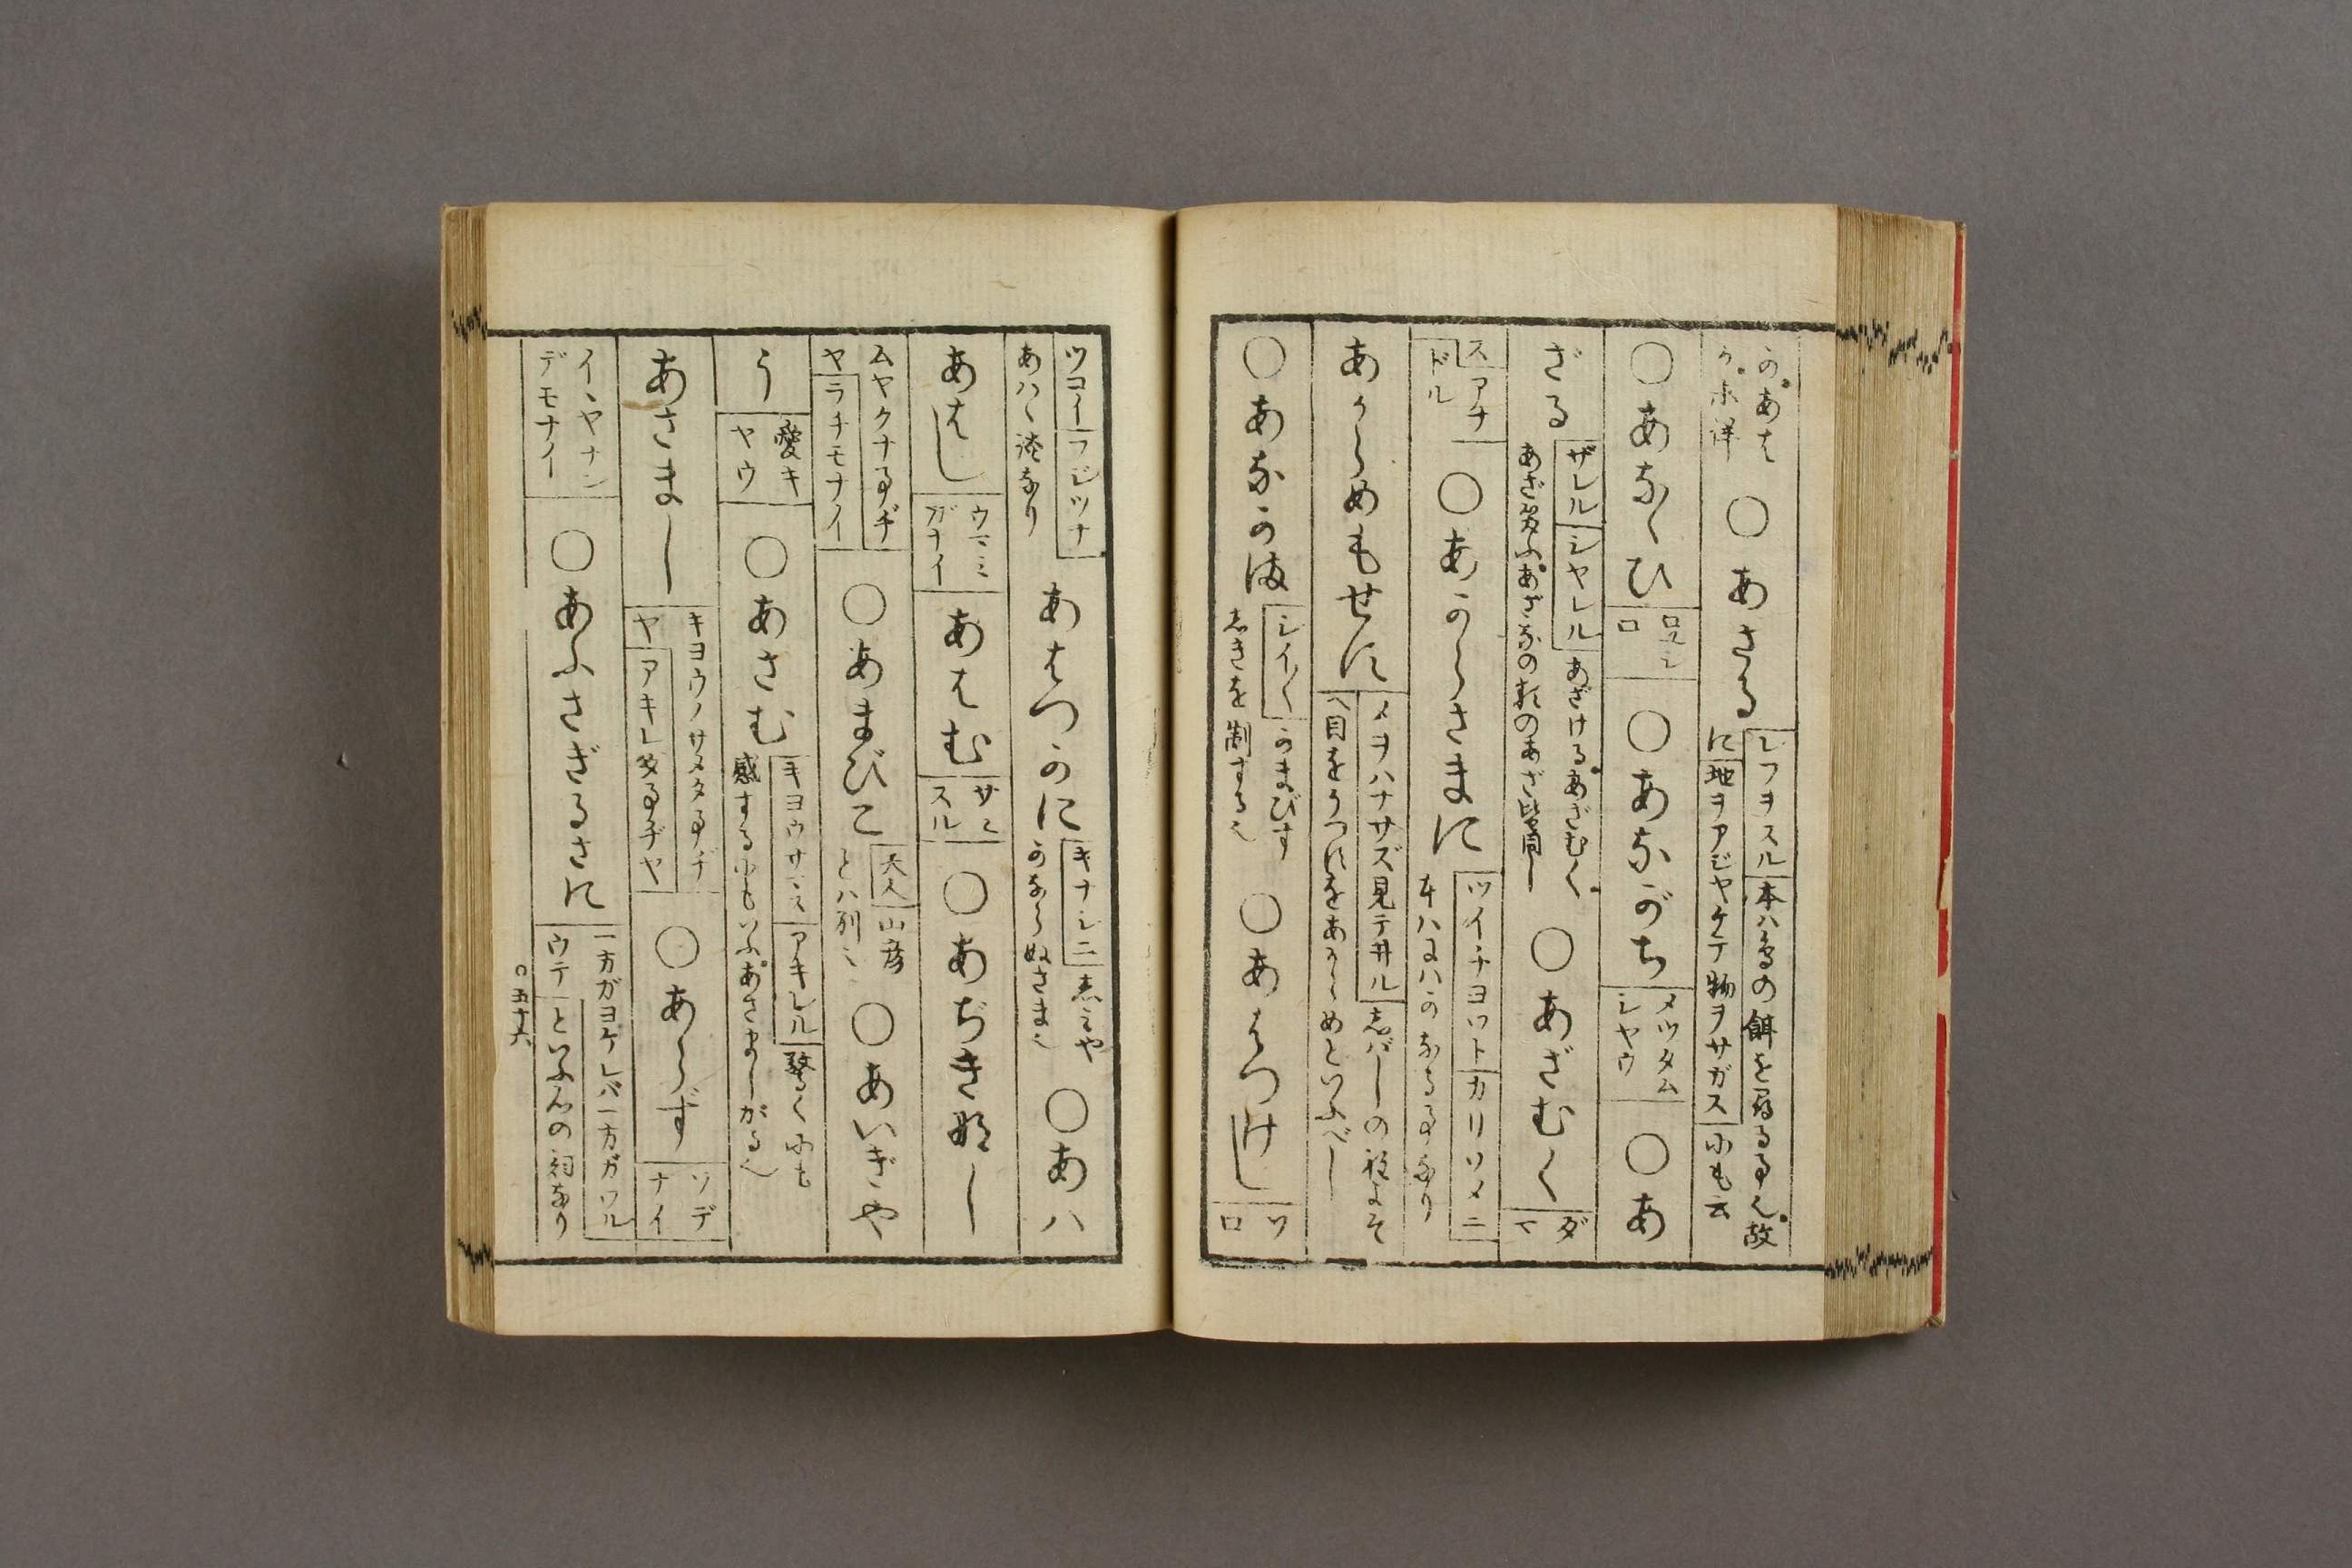 のあは
か未詳
○あさる
レフヲスル 本ハ鳥の餌を尋るる事也故
に 地ヲアジヤケテ物ヲサガス にも云
○あなくひ
○あながち
メツタム
シヤウ
○あ
ざる
ザレル シヤレル あざける あざむく
あざ笑ふ あざなの類のあざ皆同し
○あざむく
ダ
マ
ス アナ
ドル
○あからさまに
ツイチヨツト カリソメニ
あからめもせに
メヲハナサズ見テ井ル しバしの程よそ
へ目をうつすをあからめといふべし
○あなかま
シイ〱 かまびす
しきを制する也
○あはつけし
ツ
ロ
ツコイ フジツナ
あハく淡なり
あはつかに
キナシニ
かならぬさま也
○あハ
あはし
ウマミ
ガナイ
あはむ
サミ
スル
○あぢき那し
ムヤクナ事ヂ
ヤ ラチモナイ
○あまびこ
天人 山彦
とハ別也
○あいぎや
う
愛キ
ヤウ
○あさむ
キヨウサマス アキレル 驚くにも
感するにもいふ あさましがる也
あさまし
キヨウノサメタ事ヂ
ヤ アキレタ事ヂヤ
○あらず
ソデ
ナイ
イヽヤナン
デモナイ
○あふさぎるさに
一方ガヨケレバ一方ガワル
ウテ といふ心の詞なり
○五十六